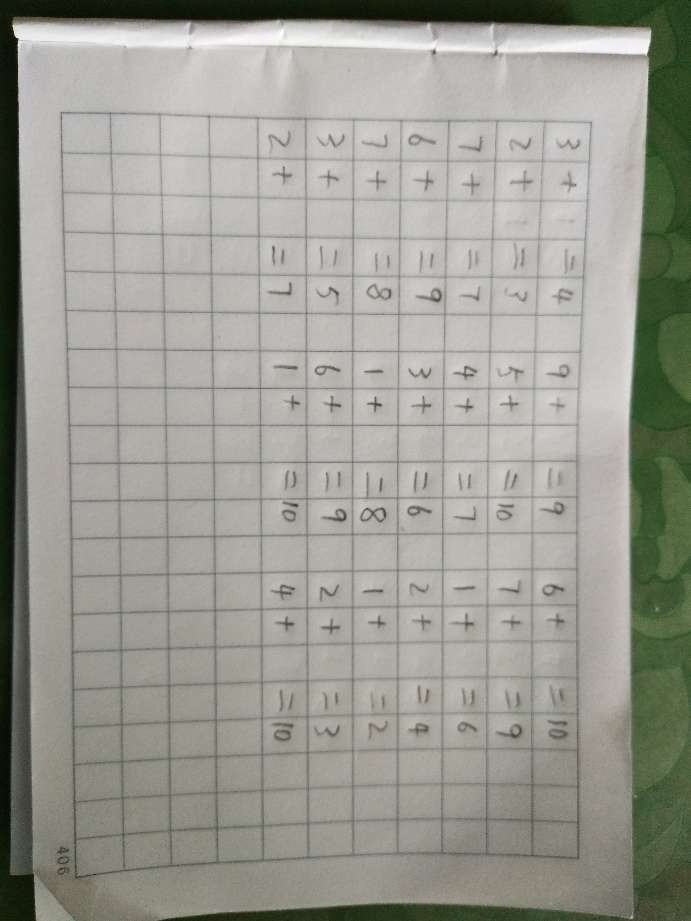 3 + 1 = 4 9 + = 9 6 + = 10
2 + 1 = 3 5 + = 10 7 + = 9
7 + = 7 4 + = 7 1 + = 6
6 + = 9 3 + = 6 2 + = 4
7 + = 8 1 + = 8 1 + = 2
3 + = 5 6 + = 9 2 + = 3
2 + = 7 1 + = 10 4 + = 10
406